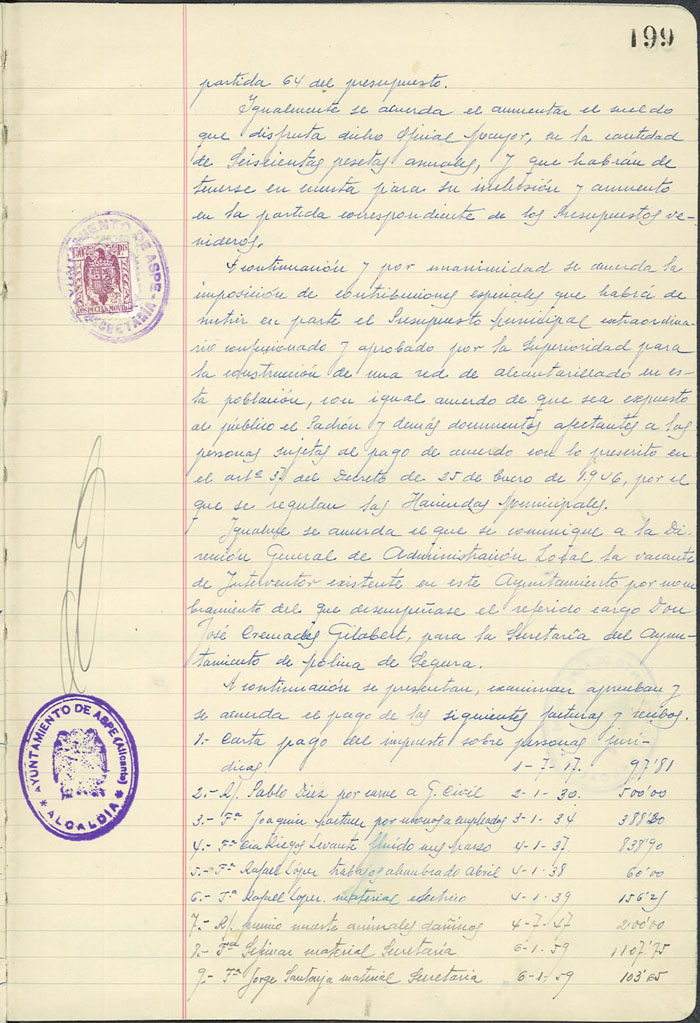 199
partida 64 del presupuesto.
Igualmente se acuerda el aumentar el sueldo
que disfruta dicho Oficial Mayor, en la cantidad
de Seiscientas pesetas anuales, y que habrán de
tenerse en cuenta para su inclusión y aumento
en la partida correspondiente de los Presupuestos ve-
nideros.
A continuación y por unanimidad se acuerda la
imposición de contribuciones especiales que habrá de
nutrir en parte el Presupuesto Municipal extraordina-
rio confecionado y aprobado por la Superioridad para
la construcción de una red de alcantarillado en es-
ta población, con igual acuerdo de que sea expuesto
al público el Padrón y demás documentos afectantes a las
personas sujetas al pago de acuerdo con lo prescrito en
el artº 37 del Decreto de 25 de Enero de 1.946, por el
que se regulan las Haciendas Municipales.
Igualmte se acuerda el que se comunique a la Di-
rección General de Administración Local la vacante
de Interventor existente en este Ayuntamiento por nom-
bramiento del que desempeñase el referido cargo Don
José Cremades Gilabert, para la Secretaría del Ayun-
tamiento de Molina de Segura.
A continuación se presentan, examinan aprueban y
se acuerda el pago de las siguientes facturas y recibos.
1.- Carta pago del impuesto sobre personas jurí-
dicas 1-7-17. 97'81
2.- R/. Pablo Díez por carne a G. Civil 2-1-30. 500'00
3.- Fª Joaquín por monos a empleados 3-1-34 388'20
4.- Fª Cía Riegos Levante fluido mes marzo 4-1-37 838'90
5.- Fª Rafael López trabajos alumbrado Abril 4-1-38 60'00
6.- Fª Rafael López. material eléctrico 4-1-39 156'25
7.- R/. premio muerte animales dañinos 4-7-47 200'00
8.- Fª material Secretaría 6-1-59 1107'75
9.- Fª Jorge Santonja material Secretaría 6-1-59 103'65
AYUNTAMIENTO DE ASPE
SECRETARIA
1'50 PTS
ESPECIAL MOVIL
AYUNTAMIENTO DE ASPE (Alicante)
* ALCALDIA *